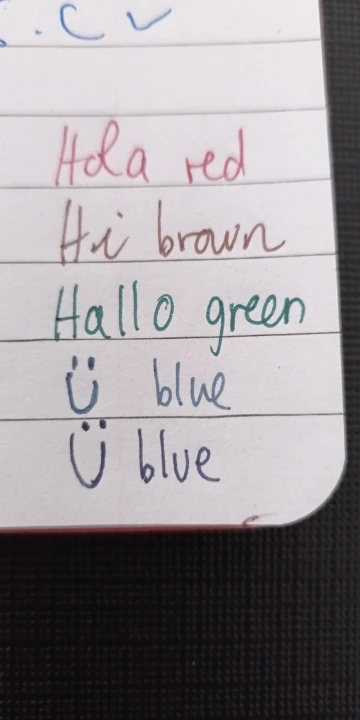 Hola red
Hi brown
Hallo green
Ü blue
Ü blue